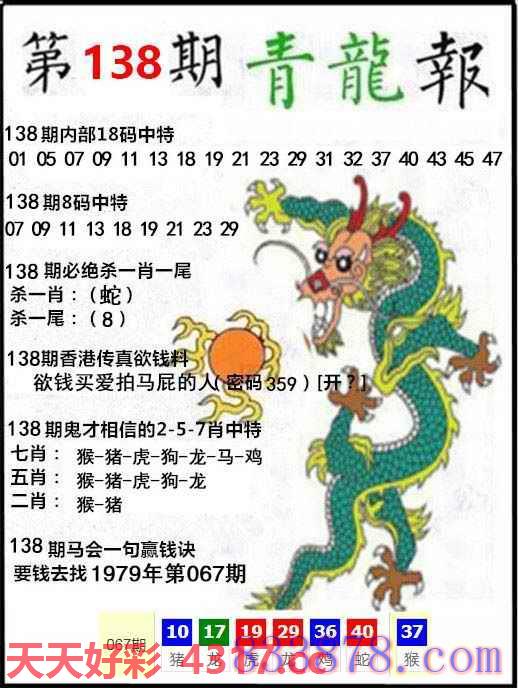 第138期青龍報
138期内部18码中特
01 05 07 09 11 13 18 19 21 23 29 31 32 37 40 43 45 47
138期8码中特
07 09 11 13 18 19 21 23 29
138期必绝杀一肖一尾
杀一肖：（蛇）
杀一尾：（8）
138期香港传真欲钱料
欲钱买爱拍马屁的人(密码359)[开?]
138期鬼才相信的2-5-7肖中特
七肖： 猴-猪-虎-狗-龙-马-鸡
五肖： 猴-猪-虎-狗-龙
二肖： 猴-猪
138期马会一句赢钱诀
要钱去找1979年第067期
067期 10 17 19 29 36 40 37
猪 龙 虎 龙 鸡 蛇 猴
天天好彩 4317.cc